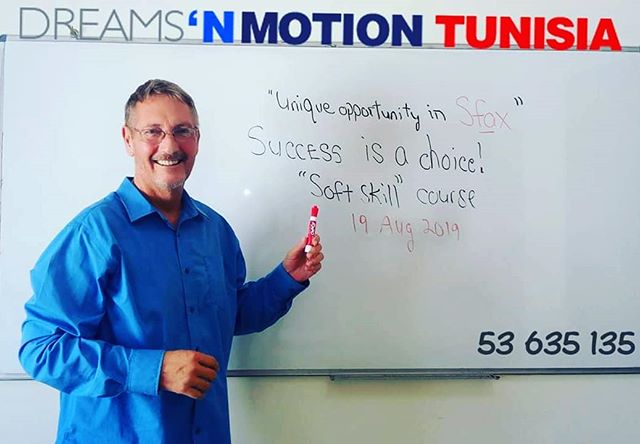 DREAMS'NMOTION TUNISIA
"Unique opportunity in Sfax"
Success is a choice!
"Soft skill" course
19 Aug 2019
53 635 135